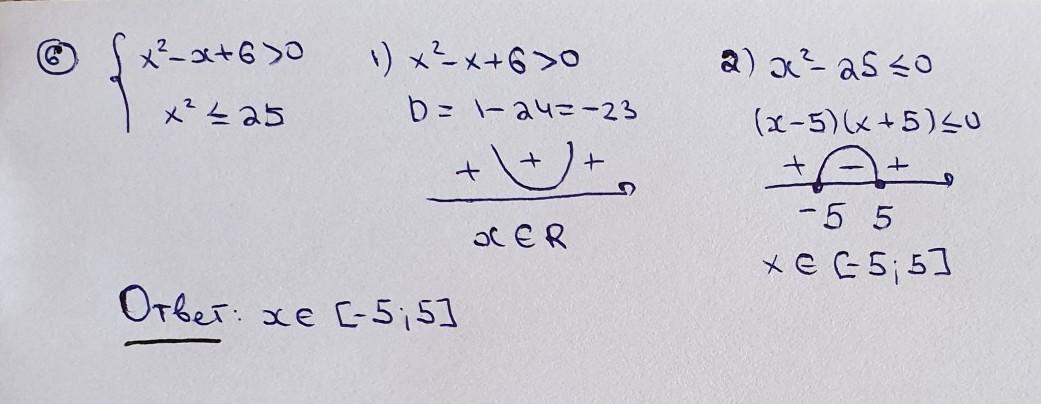 6 { x² - x + 6 > 0
x² ≤ 25
1) x² - x + 6 > 0
D = 1 - 24 = -23
+ + +
x ∈ R
2) x² - 25 ≤ 0
(x - 5)(x + 5) ≤ 0
+ - +
-5 5
x ∈ [-5; 5]
Ответ: x ∈ [-5; 5]